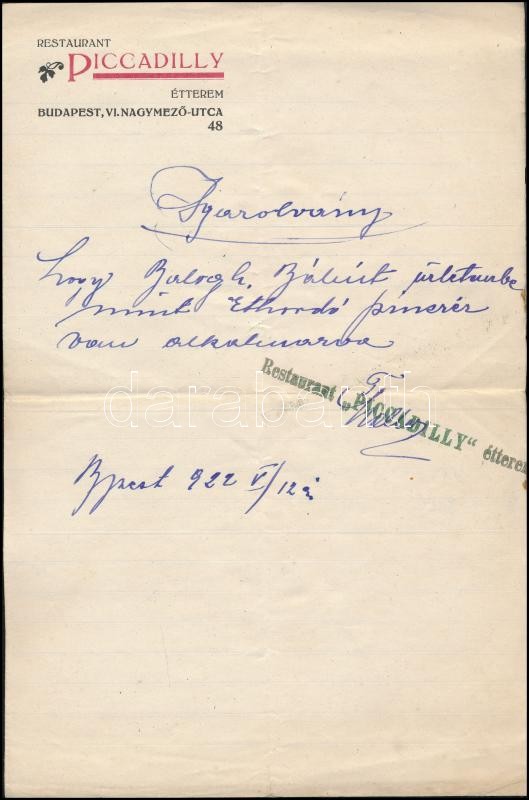 RESTAURANT
PICCADILLY
ÉTTEREM
BUDAPEST, VI. NAGYMEZŐ-UTCA
48
Igazolvány
hogy Balogh Bálint üzletembe
mint Ethordó pinczér
van alkalmazva
Restaurant „PICCADILLY“ étterem
darabanth
Bpest 922 V/12 én